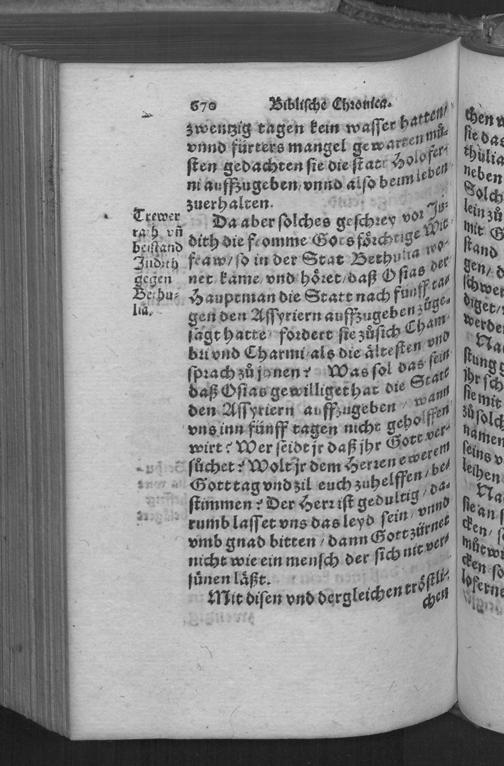 670 Biblische Chronica.
zwentzig tagen kein wasser hatten/
vnnd fürters mangel gewarten müͤ-
sten gedachten sie die statt Holofer-
ni auffzugeben/ vnnd also beim leben
zuerhalten.
Trewer
rath vñ
beistand
Judith
gegen
Bethu-
lia.
Da aber solches geschrey vor Ju-
dith die fromme Gots förchtige Wit-
fraw/ so in der Stat Bethulia wo-
net kame/ vnd höret/ daß Osias der
Hauptman die Statt nach fünff ta-
gen den Assyriern auffzugeben zuͦge-
sagt hatte/ fordert sie zuͦsich Cham-
bri vnd Charmi/ als die ältesten/ vnd
sprach zuͦ jnen? Was sol das sein
daß Osias gewilliget hat die Statt
den Assyriern auffzugeben/ wann
vns inn fünff tagen nicht geholffen
wirt? Wer seidt jr daß jhr Gott ver-
suͦchet? Wolt jr dem Herren ewerem
Gott tag vnd zil euch zuhelffen/ be-
stimmen? Der Herr ist gedultig/ da-
rumb lasset vns das leyd sein/ vnnd
vmb gnad bitten/ dann Gott zürnet
nicht wie ein mensch der sich nit ver-
sünen läßt.
Mit disen vnd dergleichen tröstli-
chen